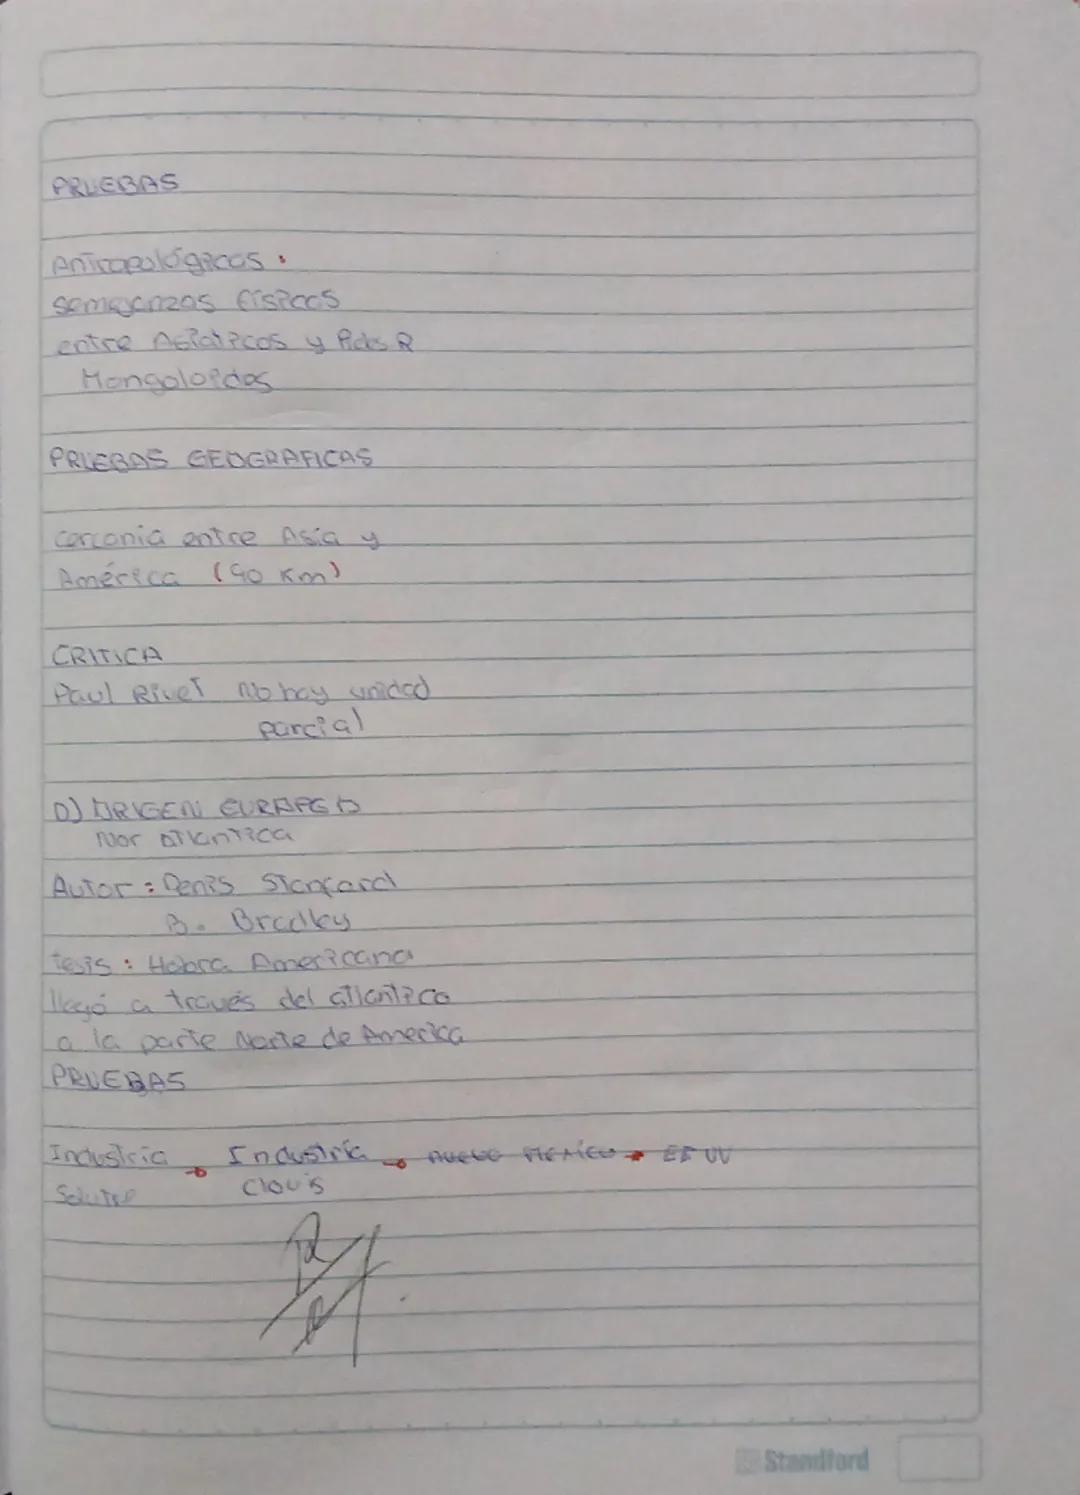 PRUEBAS
Antropológicas :
semejanzas físicas
entre Asiaticos y
Mongoloides
PRUEBAS GEOGRAFICAS
cercania entre Asia y
América (90 Km)
CRITICA
Paul Rivet No hay unidad
parcial
D) ORIGEN
Nor atlantica
Autor : Denis Stanford
B. Bradley
tesis : Hobra Americana
llegó a través del atlantico
a la parte Norte de America
PRUEBAS
Industria → Industria → Nuevo Mexico → EE UU
Clovis
Standford